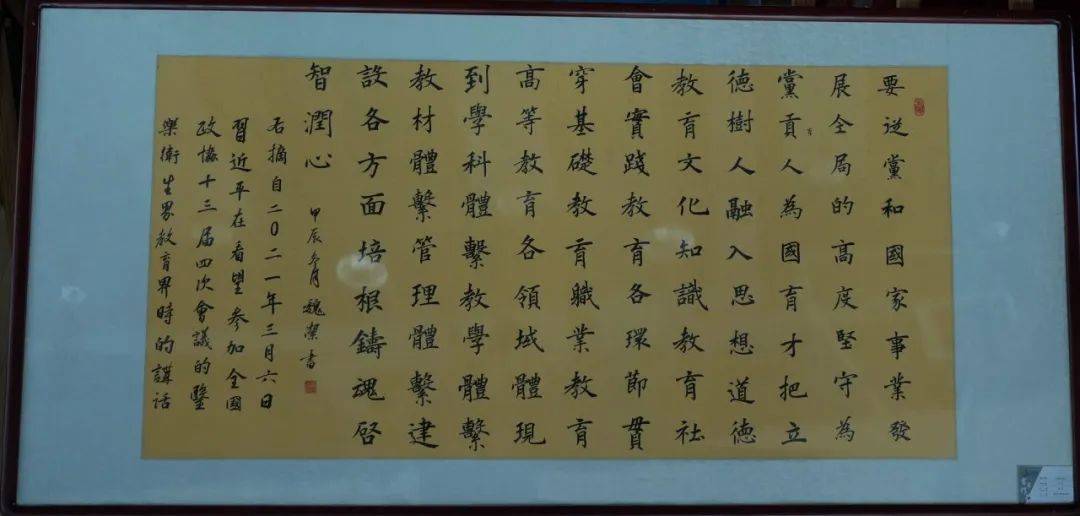 要從黨和國家事業發
展全局的高度堅守為
黨貢人為國育才把立
德樹人融入思想道德
教育文化知識教育社
會實踐教育各環節貫
穿基礎教育職業教育
高等教育各領域體現
到學科體繫教學體繫
教材體繫管理體繫建
設各方面培根鑄魂启
智潤心 甲辰冬月 魏潔書
右摘自二〇二一年三月六日
習近平在看望參加全國
政協十三届四次會議的醫
樂衛生界教育界時的講話